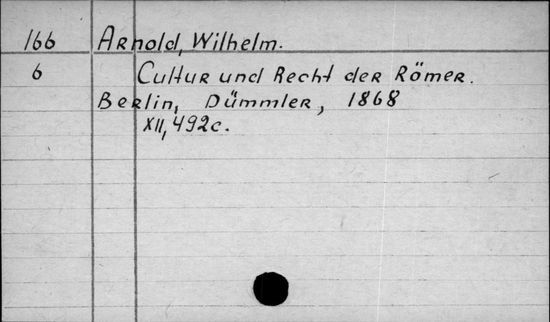 166 Arnold, Wilhelm.
6 Cultur und Recht der Römer.
Berlin, Dümmler, 1868
XII, 492c.